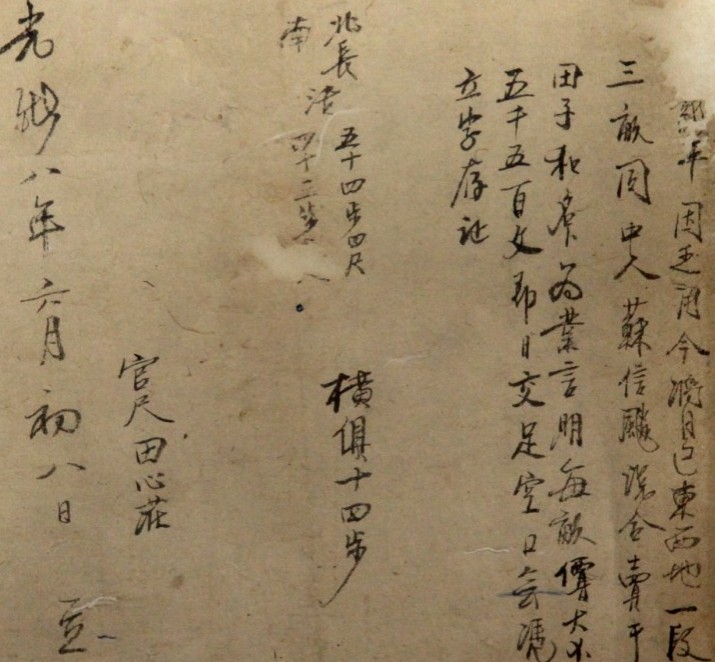 年因乏用今將自己東西地一段
三畝同中人蘇信 說合賣于
田子和 名下為業言明每畝價大小
五千五百文即日交足空口無憑
立字存証
北長活五十四步四尺
南 四十三步 八
橫俱十四步
官尺田心莊
光緒八年六月初八日 立